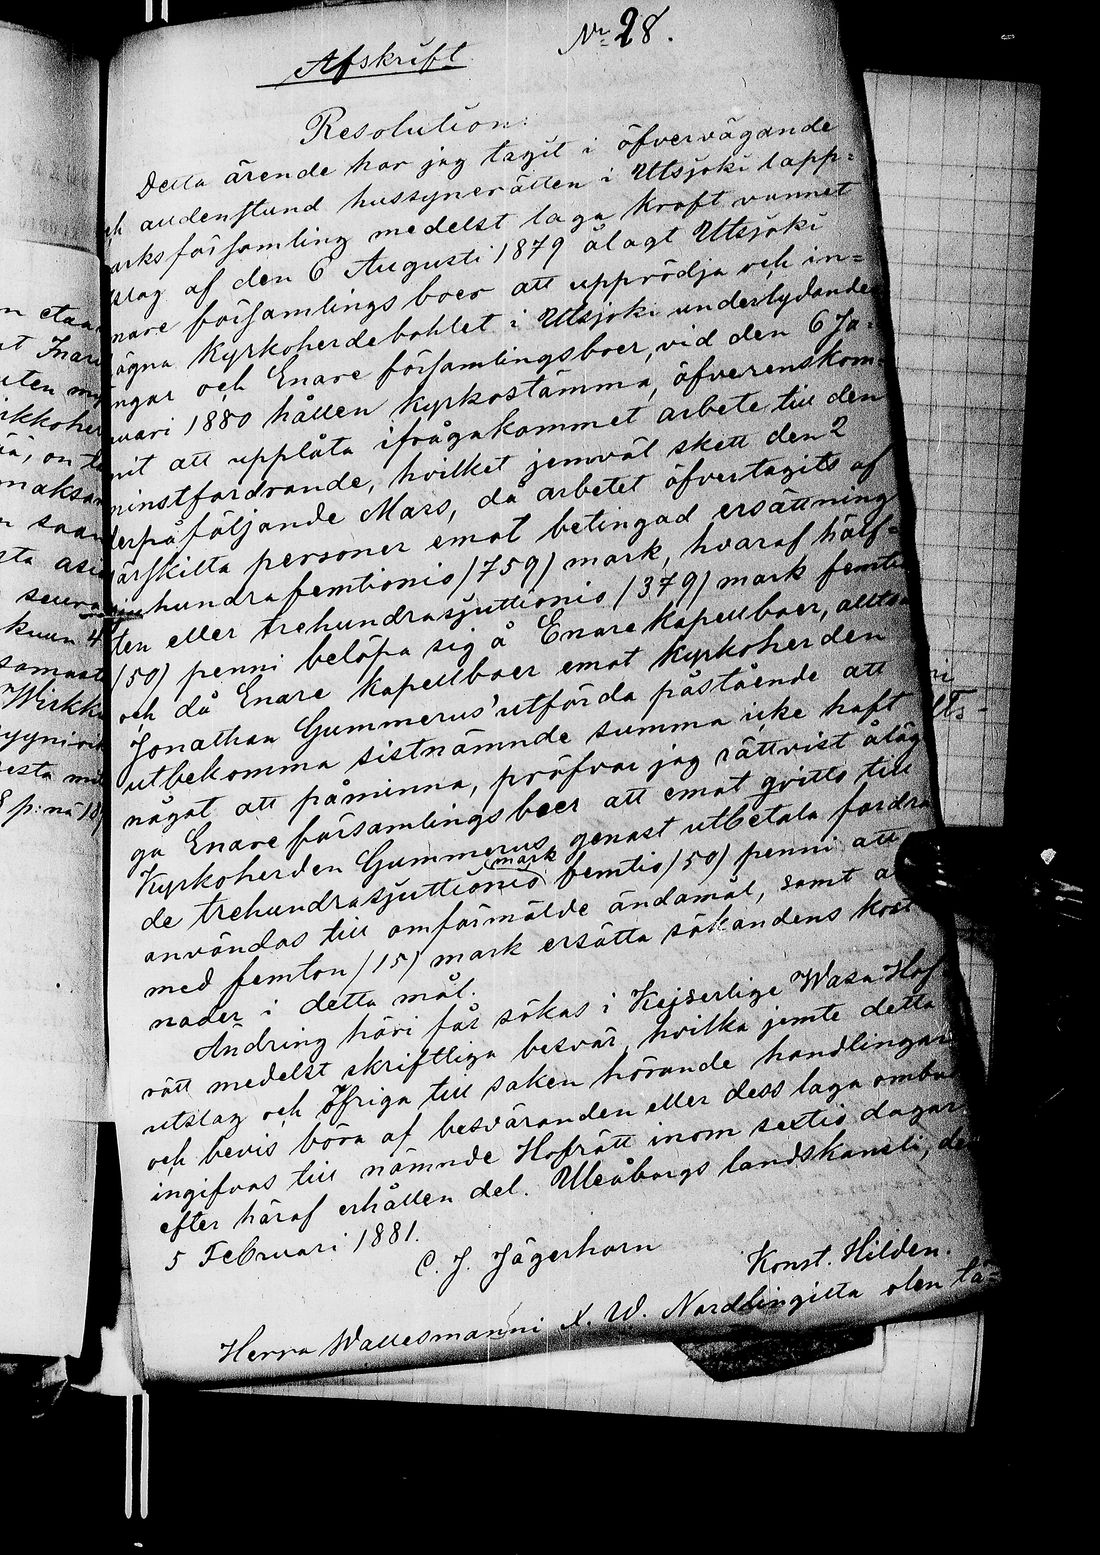 Nr 28.
Afskrift
Resolution:
Detta ärende har jag tagit i öfvervägande
och audenstund hussynerätten i Utsjoki lapp=
marksförsamling medelst laga kraft vunnet
utslag af den 6 Augusti 1879 ålagt Utsjoki
Enare församlings boer att upprödja och in=
hägna Kyrkoherdebohlet i Utsjoki underlydande
ängar och Enare församlingsboer, vid den 6 Ja=
nuari 1880 hållen kyrkostämma, öfverenskom=
mit att upplåta ifrågakommet arbete till den
minstfordrande, hvilket jemväl skett den 2
derpåföljande Mars, då arbetet öfvertagits af
särskilta personer emot betingad ersättning
sjuhundrafemtionio /759/ mark, hvaraf hälf=
ten eller trehundrasjuttionio /379/ mark femtio
/50/ penni belöpa sig å Enare kapellboer, alltså
och då Enare kapellboer emot Kyrkoherden
Jonathan Gummerus' utförda påstående att
utbekomma sistnämnde summa icke haft
något att påminna, pröfvar jag rättvist åläg
ga Enare församlingsboer att emot qvitto till
Kyrkoherden Gummerus genast utbetala fordra
de trehundrasjuttionio mark femtio /50/ penni att
användas till omförmälde ändamål, samt a
med femton /15/ mark ersätta sökandens kost
nader i detta mål.
Ändring häri får sökas i Kejserlige Wasa Hof
rätt medelst skriftliga besvär, hvilka jemte detta
utslag och öfriga till saken hörande handlingar
och bevis, böra af besväranden eller dess laga ombud
ingifvas till nämnde Hofrätt inom sextio dagar
efter häraf erhållen del. Uleåborgs landskansli, den
5 Februari 1881.
C. J. Jägerhorn
Konst. Hilden.
Herra Wallesmanni X. W. Nordlingilta olen tä=